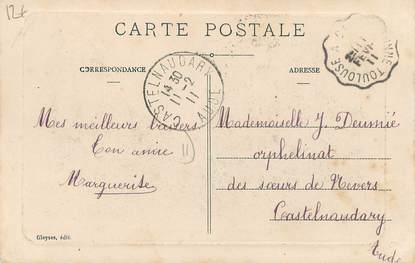 12€
CARTE POSTALE
CORRESPONDANCE
ADRESSE
TOULOUSE
CASTELNAUDARY AUDE
14 30
11 - 2
11
Mes meilleurs baisers
Ton amie
Marguerite
Mademoiselle J.
orphelinat
des sœurs de Nevers
Castelnaudary
Aude
Gleyses, édit.